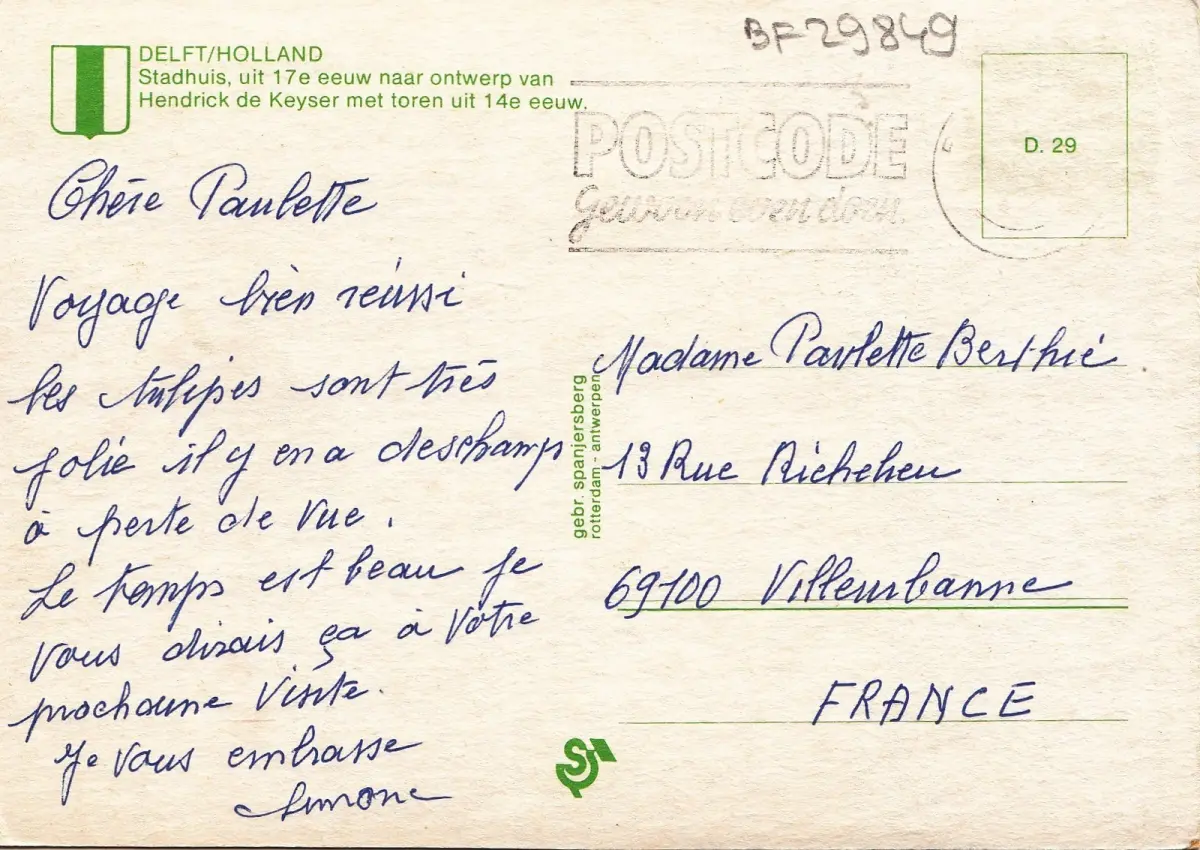 BF29849
DELFT/HOLLAND
Stadhuis, uit 17e eeuw naar ontwerp van
Hendrick de Keyser met toren uit 14e eeuw.
POSTCODE
Gewoon even doen.
D. 29
Chère Paulette
Voyage bien réussi
les tulipes sont très
jolie il y en a des champs
à perte de vue.
Le temps est beau je
vous dirais ça à votre
prochaine visite.
Je vous embrasse
Simone
gebr. spanjersberg
rotterdam - antwerpen
Madame Paulette Berthié
13 Rue Richelieu
69100 Villeurbanne
FRANCE